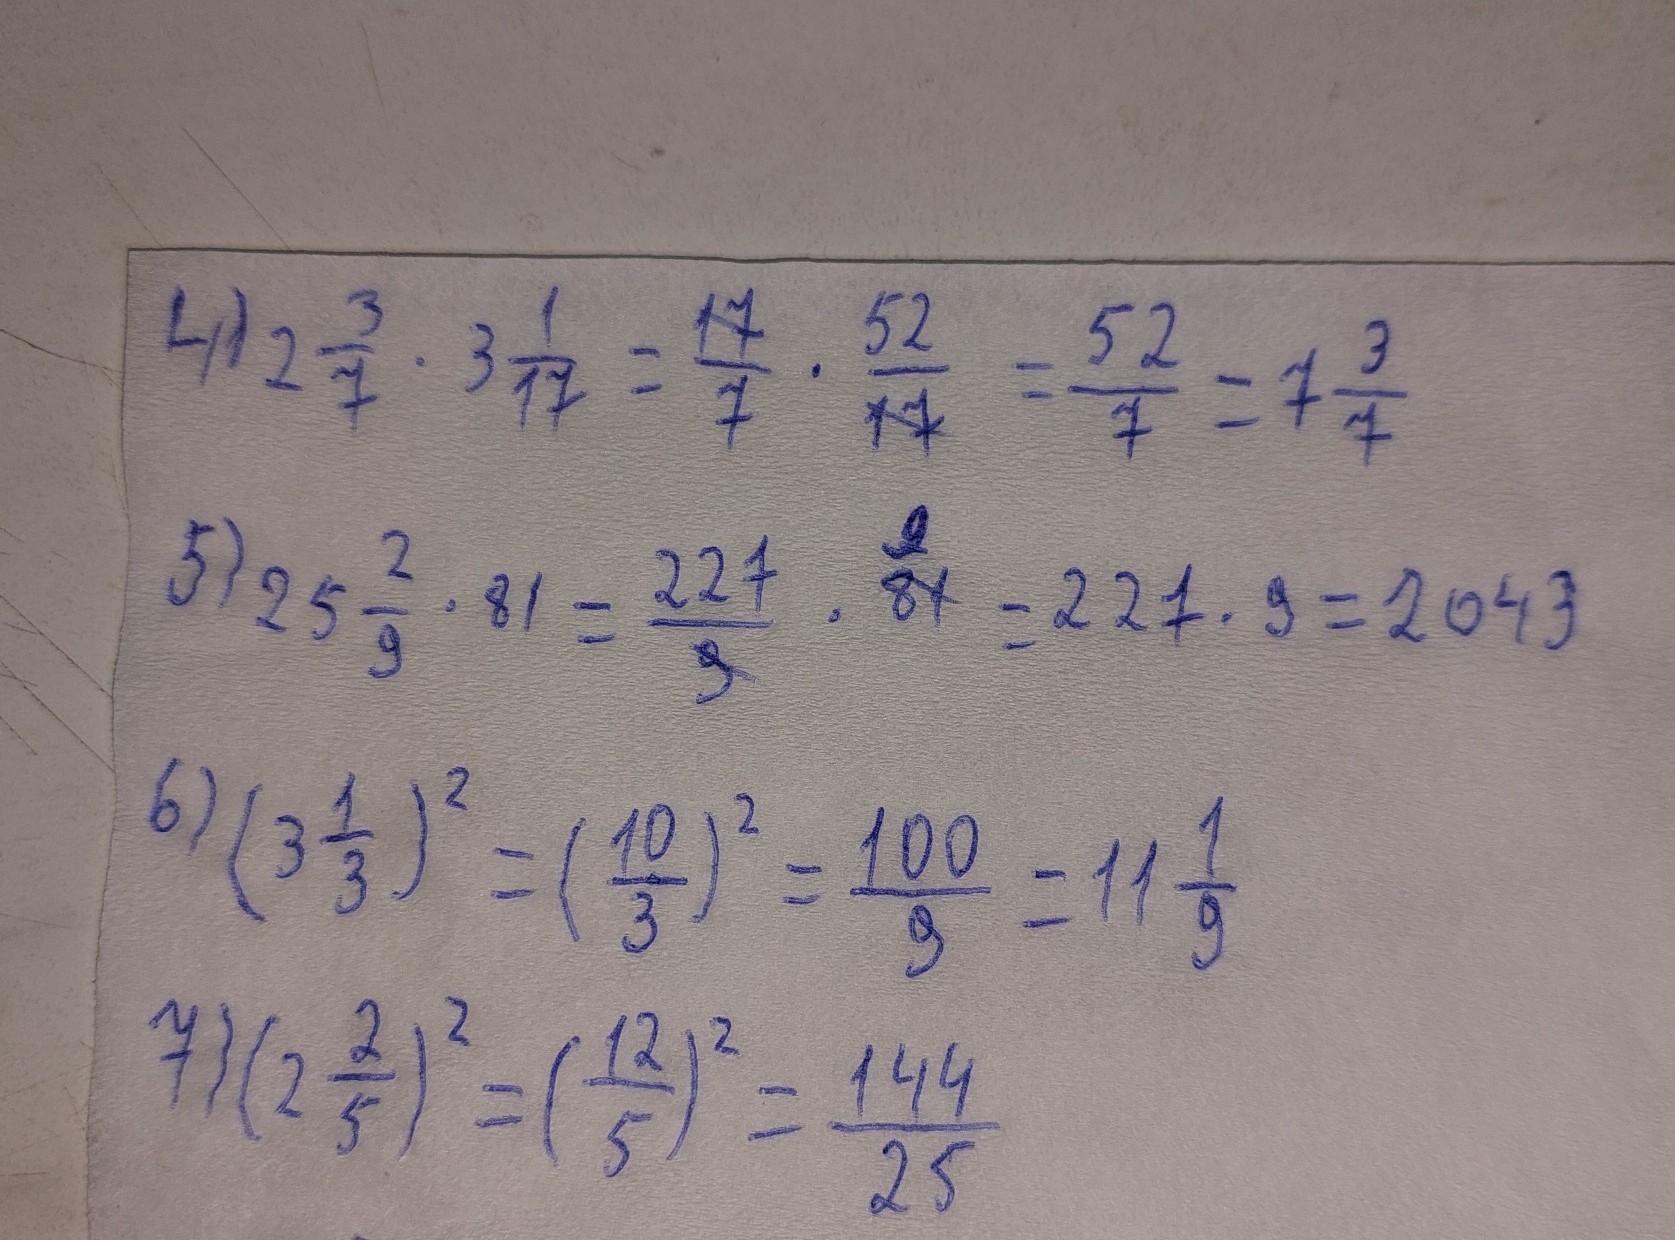 4) 2 3/7 · 3 1/17 = 17/7 · 52/17 = 52/7 = 7 3/7
5) 25 2/9 · 81 = 227/9 · 81 9 = 227 · 9 = 2043
6) (3 1/3)² = (10/3)² = 100/9 = 11 1/9
7) (2 2/5)² = (12/5)² = 144/25